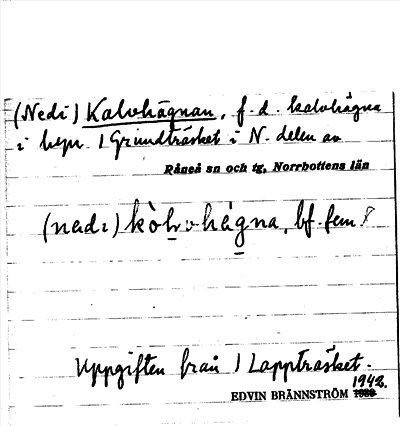 (Nedi) Kalvhägnan, f.d. kalvhägna
i byn 1 Grundträsket i N. delen av
Råneå sn och tg, Norrbottens län
bf. fem.
Uppgiften från 1 Lappträsket.
1942.
EDVIN BRÄNNSTRÖM